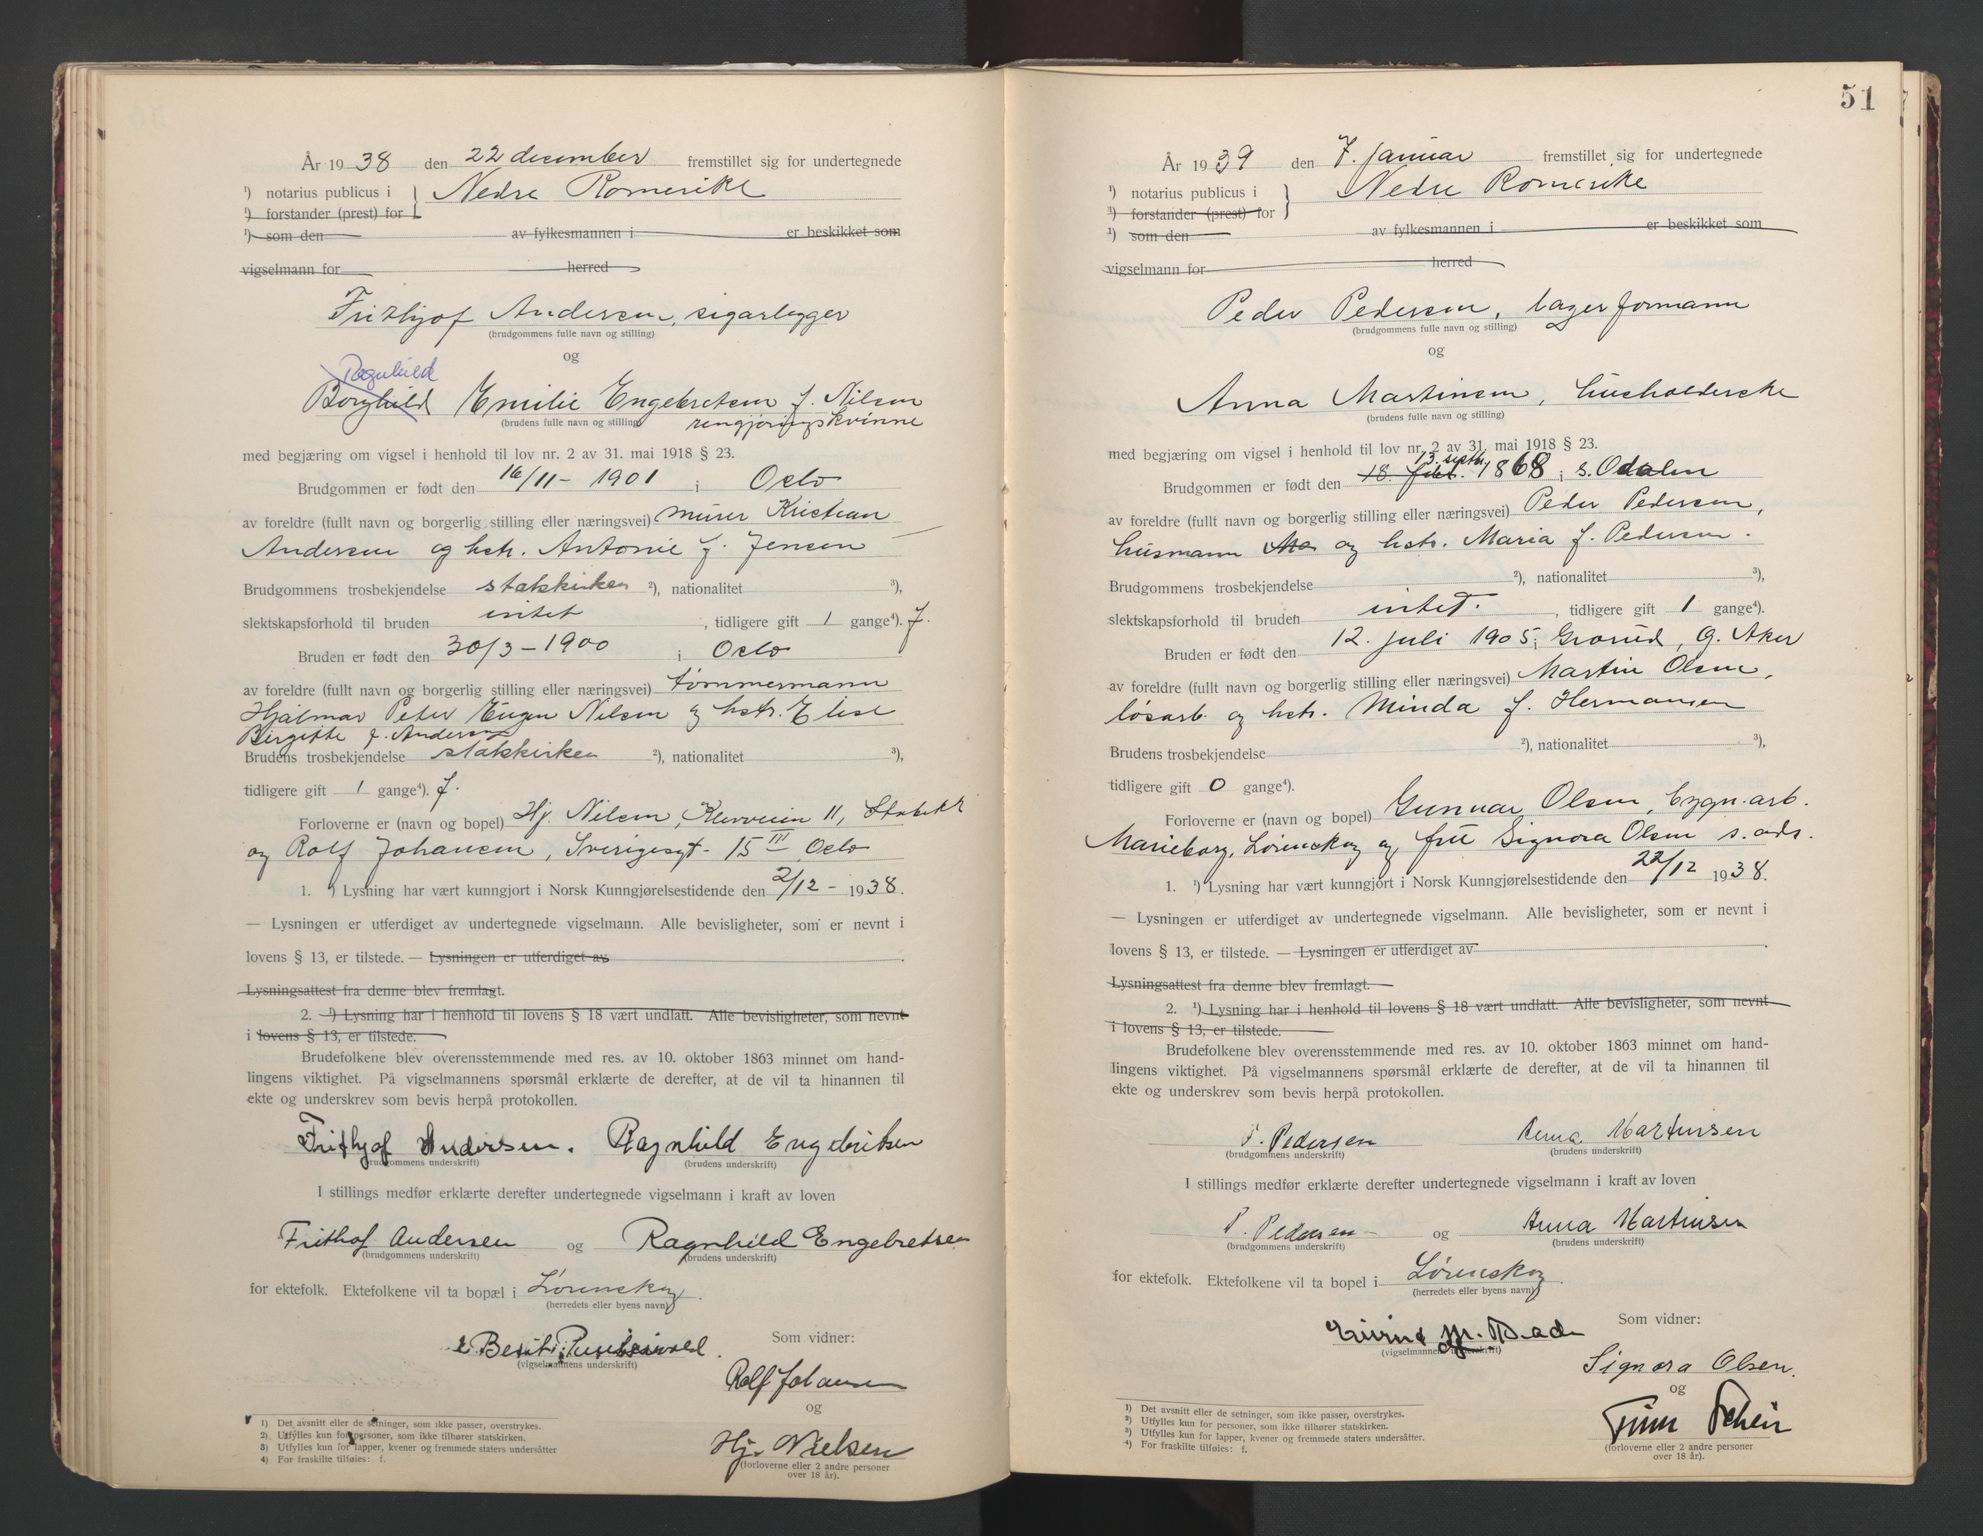 År 1938 den 22 december fremstillet sig for undertegnede
¹) notarius publicus i } Nedre Romerike
¹) forstander (prest) for
¹) som den av fylkesmannen i er beskikket som
vigselmann for herred
Frithjof Andersen, sigarlegger
(brudgommens fulle navn og stilling)
og
Ragnhild
Borghild Emilie Engebretsen f. Nilsen
(brudens fulle navn og stilling) rengjøringskvinne
med begjæring om vigsel i henhold til lov nr. 2 av 31. mai 1918 § 23.
Brudgommen er født den 16/11 - 1901 i Oslo
av foreldre (fullt navn og borgerlig stilling eller næringsvei) murer Kristian
Andersen og hstr. Antonie f. Jensen
Brudgommens trosbekjendelse statskirken ²), nationalitet ³),
slektskapsforhold til bruden intet, tidligere gift 1 gange⁴). f.
Bruden er født den 30/3 - 1900 i Oslo
av foreldre (fullt navn og borgerlig stilling eller næringsvei) tømmermann
Hjalmar Peter Eugen Nilsen og hstr. Elise
Birgitte f. Andersen
Brudens trosbekjendelse statskirken ²), nationalitet ³),
tidligere gift 1 gange⁴). f.
Forloverne er (navn og bopel) Hj. Nilsen, Kleivveien 11, Stabekk
og Rolf Johansen, Sverigesgt. 15 III Oslo
1. ¹) Lysning har vært kunngjort i Norsk Kunngjørelsestidende den 2/12 - 1938.
— Lysningen er utferdiget av undertegnede vigselmann. Alle bevisligheter, som er nevnt i
lovens § 13, er tilstede. — Lysningen er utferdiget av .
Lysningsattest fra denne blev fremlagt.
2. ¹) Lysning har i henhold til lovens § 18 vært undlatt. Alle bevisligheter, som nevnt
i lovens § 13, er tilstede.
Brudefolkene blev overensstemmende med res. av 10. oktober 1863 minnet om hand-
lingens viktighet. På vigselmannens spørsmål erklærte de derefter, at de vil ta hinannen til
ekte og underskrev som bevis herpå protokollen.
Frithjof Andersen. Ragnhild Engebretsen
(brudgommens underskrift) (brudens underskrift)
I stillings medfør erklærte derefter undertegnede vigselmann i kraft av loven
Frithof Andersen og Ragnhild Engebretsen
(brudgommens underskrift) (brudens underskrift)
for ektefolk. Ektefolkene vil ta bopæl i Lørenskog.
(herredets eller byens navn)
Som vidner:
(vigselmannens underskrift)
Rolf Johansen
og
Hj. Nielsen
(forloverne eller 2 andre personer
over 18 år).
1) Det avsnitt eller de setninger, som ikke passer, overstrykes.
2) Utfylles kun for personer, som ikke tilhører statskirken.
3) Utfylles kun for lapper, kvener og fremmede staters undersåtter
4) For fraskilte tilføies: f.
51
År 1939 den 7. januar fremstillet sig for undertegnede
¹) notarius publicus i } Nedre Romerike
¹) forstander (prest) for
¹) som den av fylkesmannen i er beskikket som
vigselmann for herred
Peder Pedersen, lagerformann
(brudgommens fulle navn og stilling)
og
Anna Martinsen, husholderske
(brudens fulle navn og stilling)
med begjæring om vigsel i henhold til lov nr. 2 av 31. mai 1918 § 23.
13. septbr.
Brudgommen er født den 18. febr. 1868 i S. Odalen
av foreldre (fullt navn og borgerlig stilling eller næringsvei) Peder Pedersen,
husmann Ma og hstr. Maria f. Pedersen.
Brudgommens trosbekjendelse ²), nationalitet ³),
slektskapsforhold til bruden intet., tidligere gift 1 gange⁴).
Bruden er født den 12. juli 1905 i Grorud, Ø. Aker
av foreldre (fullt navn og borgerlig stilling eller næringsvei) Martin Olsen,
løsarb. og hstr. Minda f. Hermansen
Brudens trosbekjendelse ²), nationalitet ³),
tidligere gift 0 gange⁴).
Forloverne er (navn og bopel) Gunnar Olsen, bygn.arb.
Marieborg, Lørenskog og fru Signora Olsen s. ads.
1. ¹) Lysning har vært kunngjort i Norsk Kunngjørelsestidende den 22/12 1938.
— Lysningen er utferdiget av undertegnede vigselmann. Alle bevisligheter, som er nevnt i
lovens § 13, er tilstede. — Lysningen er utferdiget av .
Lysningsattest fra denne blev fremlagt.
2. ¹) Lysning har i henhold til lovens § 18 vært undlatt. Alle bevisligheter, som nevnt
i lovens § 13, er tilstede.
Brudefolkene blev overensstemmende med res. av 10. oktober 1863 minnet om hand-
lingens viktighet. På vigselmannens spørsmål erklærte de derefter, at de vil ta hinannen til
ekte og underskrev som bevis herpå protokollen.
P. Pedersen Anna Martinsen
(brudgommens underskrift) (brudens underskrift)
I stillings medfør erklærte derefter undertegnede vigselmann i kraft av loven
P. Pedersen og Anna Martinsen
(brudgommens underskrift) (brudens underskrift)
for ektefolk. Ektefolkene vil ta bopel i Lørenskog.
(herredets eller byens navn)
Som vidner:
(vigselmannens underskrift)
Signora Olsen.
og
(forloverne eller 2 andre personer
over 18 år).
1) Det avsnitt eller de setninger, som ikke passer, overstrykes.
2) Utfylles kun for personer, som ikke tilhører statskirken.
3) Utfylles kun for lapper, kvener og fremmede staters undersåtter.
4) For fraskilte tilføies: f.